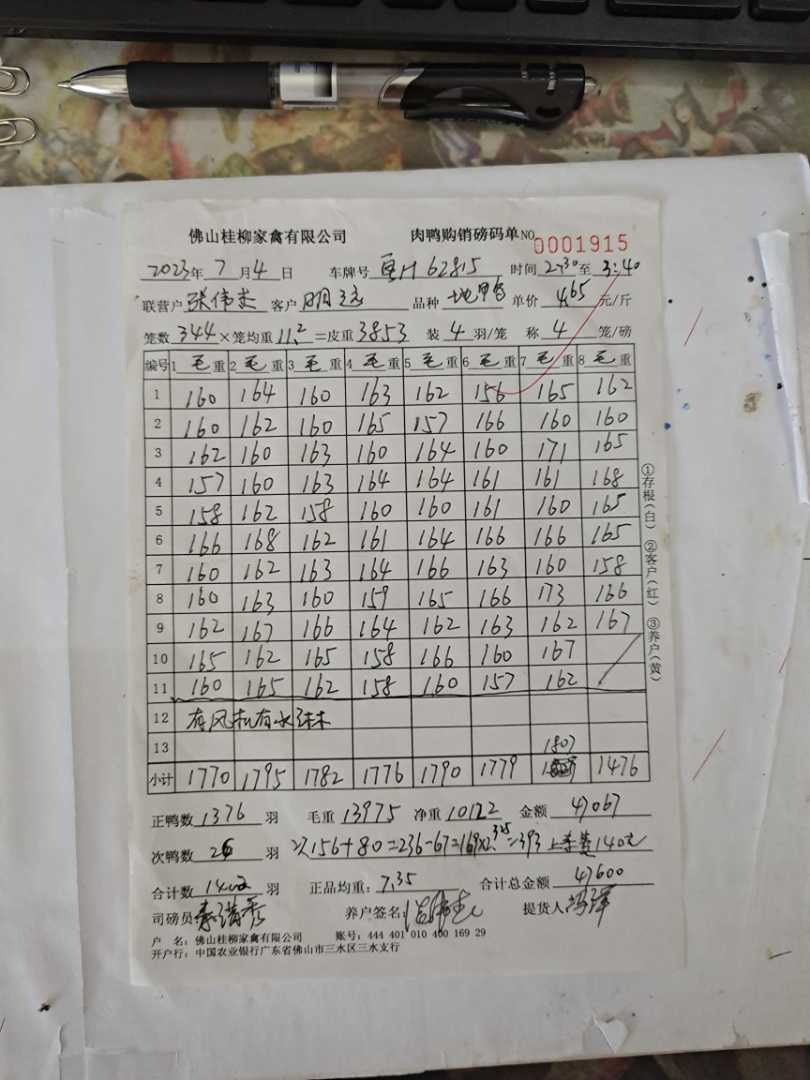 佛山桂柳家禽有限公司 肉鸭购销磅码单 NO 0001915
2023年 7 月 4 日 车牌号 粤H62815 时间 2:30 至 3:40
联营户 张伟 客户 明 品种 单价 4.65 元/斤
笼数 344 ×笼均重 11.2 =皮重 3853 装 4 羽/笼 称 4 笼/磅
编号 1 毛 重 2 毛 重 3 毛 重 4 毛 重 5 毛 重 6 毛 重 7 毛 重 8 毛 重
1 160 164 160 163 162 156 165 162
2 160 162 160 165 157 166 160 160
3 162 160 163 160 164 160 171 165
4 157 160 163 164 164 161 161 168
5 158 162 158 160 160 161 160 165
6 166 168 162 161 164 166 166 165
7 160 162 163 164 166 163 160 158
8 160 163 160 159 165 166 173 166
9 162 167 166 164 162 163 162 167
10 165 162 165 158 166 160 167
11 160 165 162 158 160 157 162
12 有风机有水
13 1807
小计 1770 1795 1782 1776 1790 1779 1476
正鸭数 1376 羽 毛重 13975 净重 10122 金额 47067
次鸭数 26 羽 156+80=236-67=169 =393 140元
合计数 1402 羽 正品均重： 7.35 合计总金额 47600
司磅员 养户签名： 提货人
户 名：佛山桂柳家禽有限公司 账号：444 401 010 400 169 29
开户行：中国农业银行广东省佛山市三水区三水支行
①存根(白) ②客户(红) ③养户(黄)